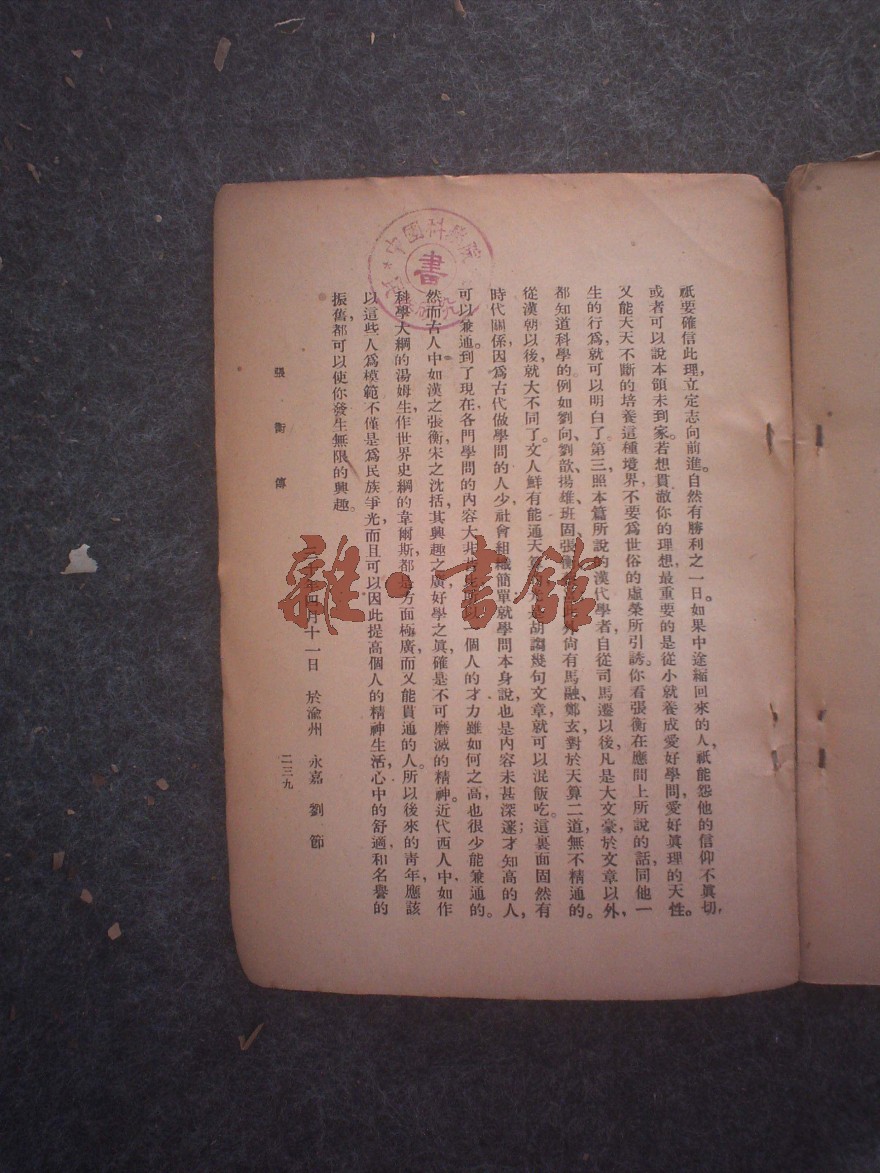 祇要確信此理，立定志向前進。自然有勝利之一日。如果中途縮回來的人，祇能怨他的信仰不眞切，
或者可以說本領未到家。若想貫澈你的理想，最重要的是從小就養成愛好學問，愛好眞理的天性。
又能天天不斷的培養這種境界，不要爲世俗的虛榮所引誘。你看張衡在應間上所說的話，同他一
生的行爲，就可以明白了。第三，照本篇所說的漢代學者，自從司馬遷以後，凡是大文豪，於文章以外，
都知道科學的。例如劉向、劉歆、揚雄、班固、張衡 外，尙有馬融、鄭玄，對於天算二道，無不精通的。
從漢朝以後，就大不同了。文人鮮有能通天算 胡謅幾句文章，就可以混飯吃。這裏面固然有
時代關係，因爲古代做學問的人少，社會組織簡單；就學問本身說，也是內容未甚深邃；才知高的人，
可以兼通。到了現在，各門學問的內容，大非 一個人的才力雖如何之高，也很少能兼通的。
然而古人中如漢之張衡，宋之沈括，其興趣之廣，好學之眞，確是不可磨滅的精神。近代西人中，如作
科學大綱的湯姆生，作世界史綱的韋爾斯，都是方面極廣，而又能貫通的人。所以後來的青年，應該
以這些人爲模範，不僅是爲民族爭光，而且可以因此提高個人的精神生活，心中的舒適和名譽的
振舊，都可以使你發生無限的興趣。
年四月十一日 於渝州 永嘉 劉節
張衡傳
二三九
中國科學院
書
雜·書館